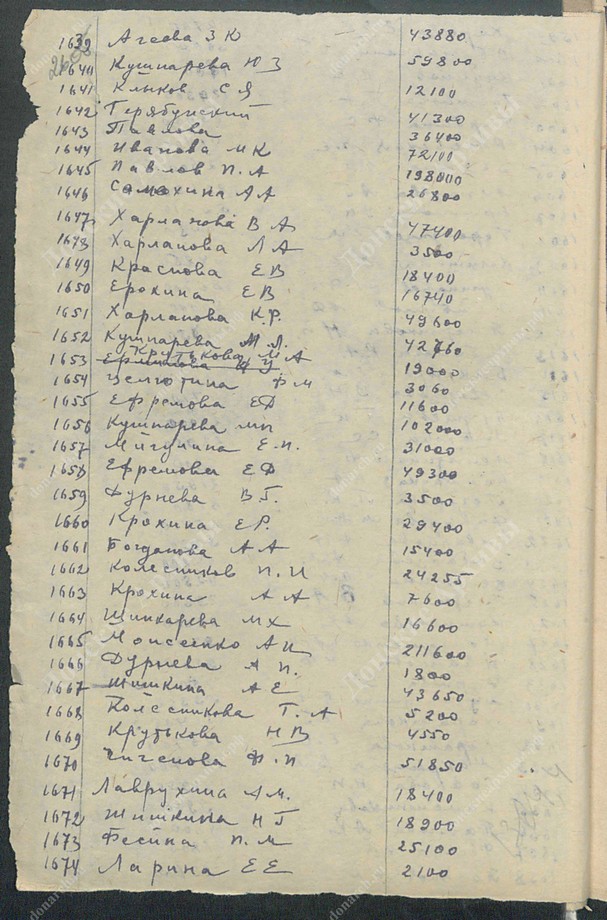 1639 Агеева З К 43880
1640 Кушнарева Ю З 59800
1641 Клыков С Я 12100
1642 Терябунский 41300
1643 Павлова 36400
1644 Иванова М К 72100
1645 Павлов П. А 198000
1646 Самохина А А 26800
1647 Харланова В А 47400
1648 Харланова Л А 3500
1649 Краснова Е В 18400
1650 Ерохина Е В 16740
1651 Харланова К. Р. 49600
1652 Кушнарева М. Л. 42760
1653 Крутькова М А 19000
1654 Ф М 3060
1655 Ефремова Е Д 11600
1656 Кушнарева М П 102000
1657 Мигулина Е. П. 31000
1658 Ефремова Е Ф 49300
1659 Дурнева В Г. 3500
1660 Крохина Е Р. 29400
1661 Богданова А А 15400
1662 Колесников П. И 24255
1663 Крохина А А 7600
1664 Шинкарева М Х 16600
1665 Моисеенко А И 211600
1666 Дурнева А П. 1800
1667 Шишкина А Е 43650
1668 Колесникова Т. А 5200
1669 Крутькова Н В 4550
1670 Чигенова Ф. П 51850
1671 Лаврухина А М. 18400
1672 Шишкина Н Г 18900
1673 Фесина П. М 25100
1674 Ларина Е Е 2100